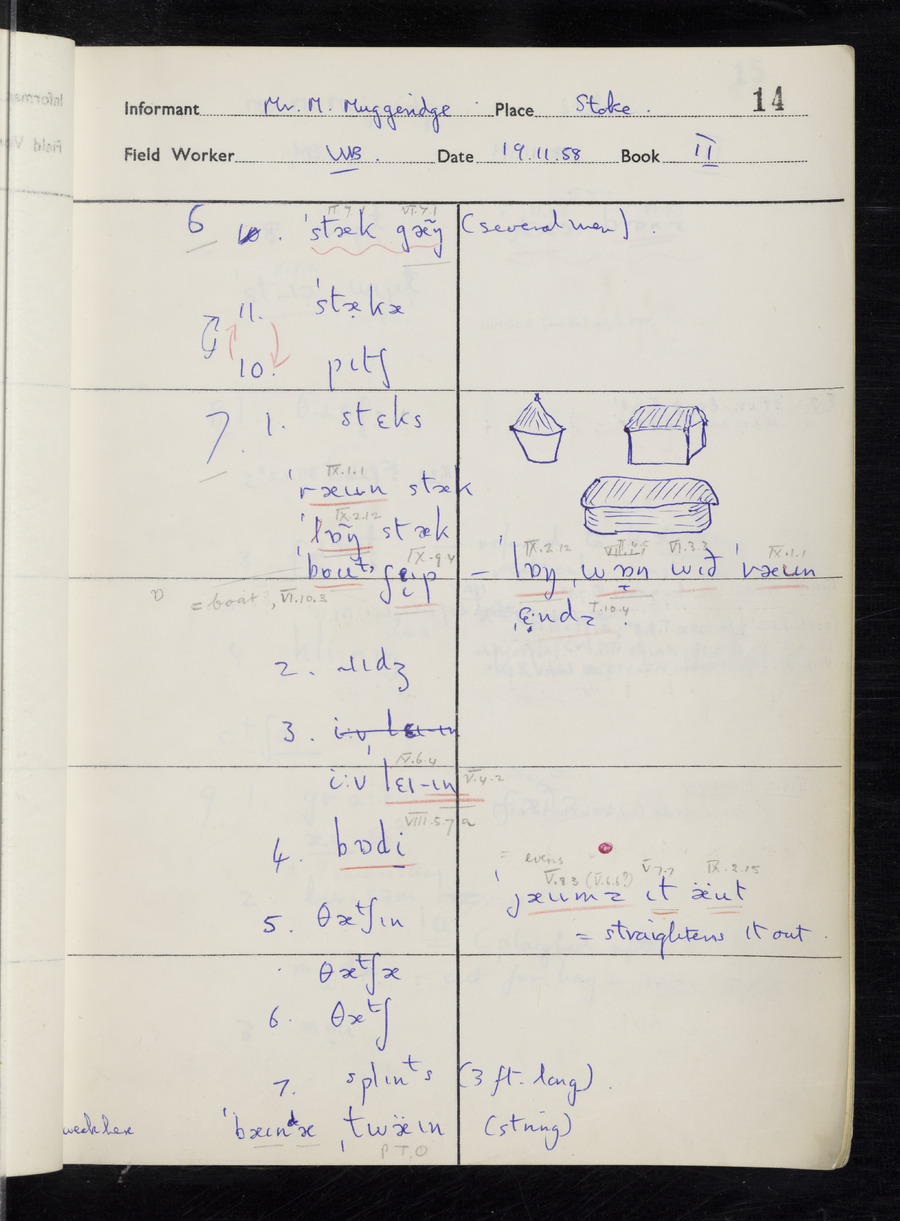 14
Informant Mr. M. Muggeridge Place Stoke.
Field Worker WB. Date 19.11.58 Book II
IX.7.1 VI.7.1
6 10. ˈstæk gæ̃ŋ (several men).
11. ˈstækə
10. pɪtʃ
7. 1. stɛks
IX.1.1
ˈræun stæk
IX.2.12
ˈlɒ̃ŋ stæk
IX.9.4 IX.2.12 VI.3.3 IX.1.1
ˈbout ʃɛip – ˈlɒŋ wɒn wɪð ˈræun
= boat, VI.10.3 ˌɛndz
2. ɹɪdʒ
3.
IX.6.4
i:v lɛɪ-ɪn V.4.2
VIII.5.7a
4. bɒdi
= evens
V.8.3 (V.6.6?) V.7.7 IX.2.15
ˈjæumz ɪt æut
5. θætʃɪn = straightens it out.
θætʃə
6. θætʃ
7. splɪnts (3 ft. long).
weekler ˈbæɪndə ˌtwæɪn (string)
P.T.O